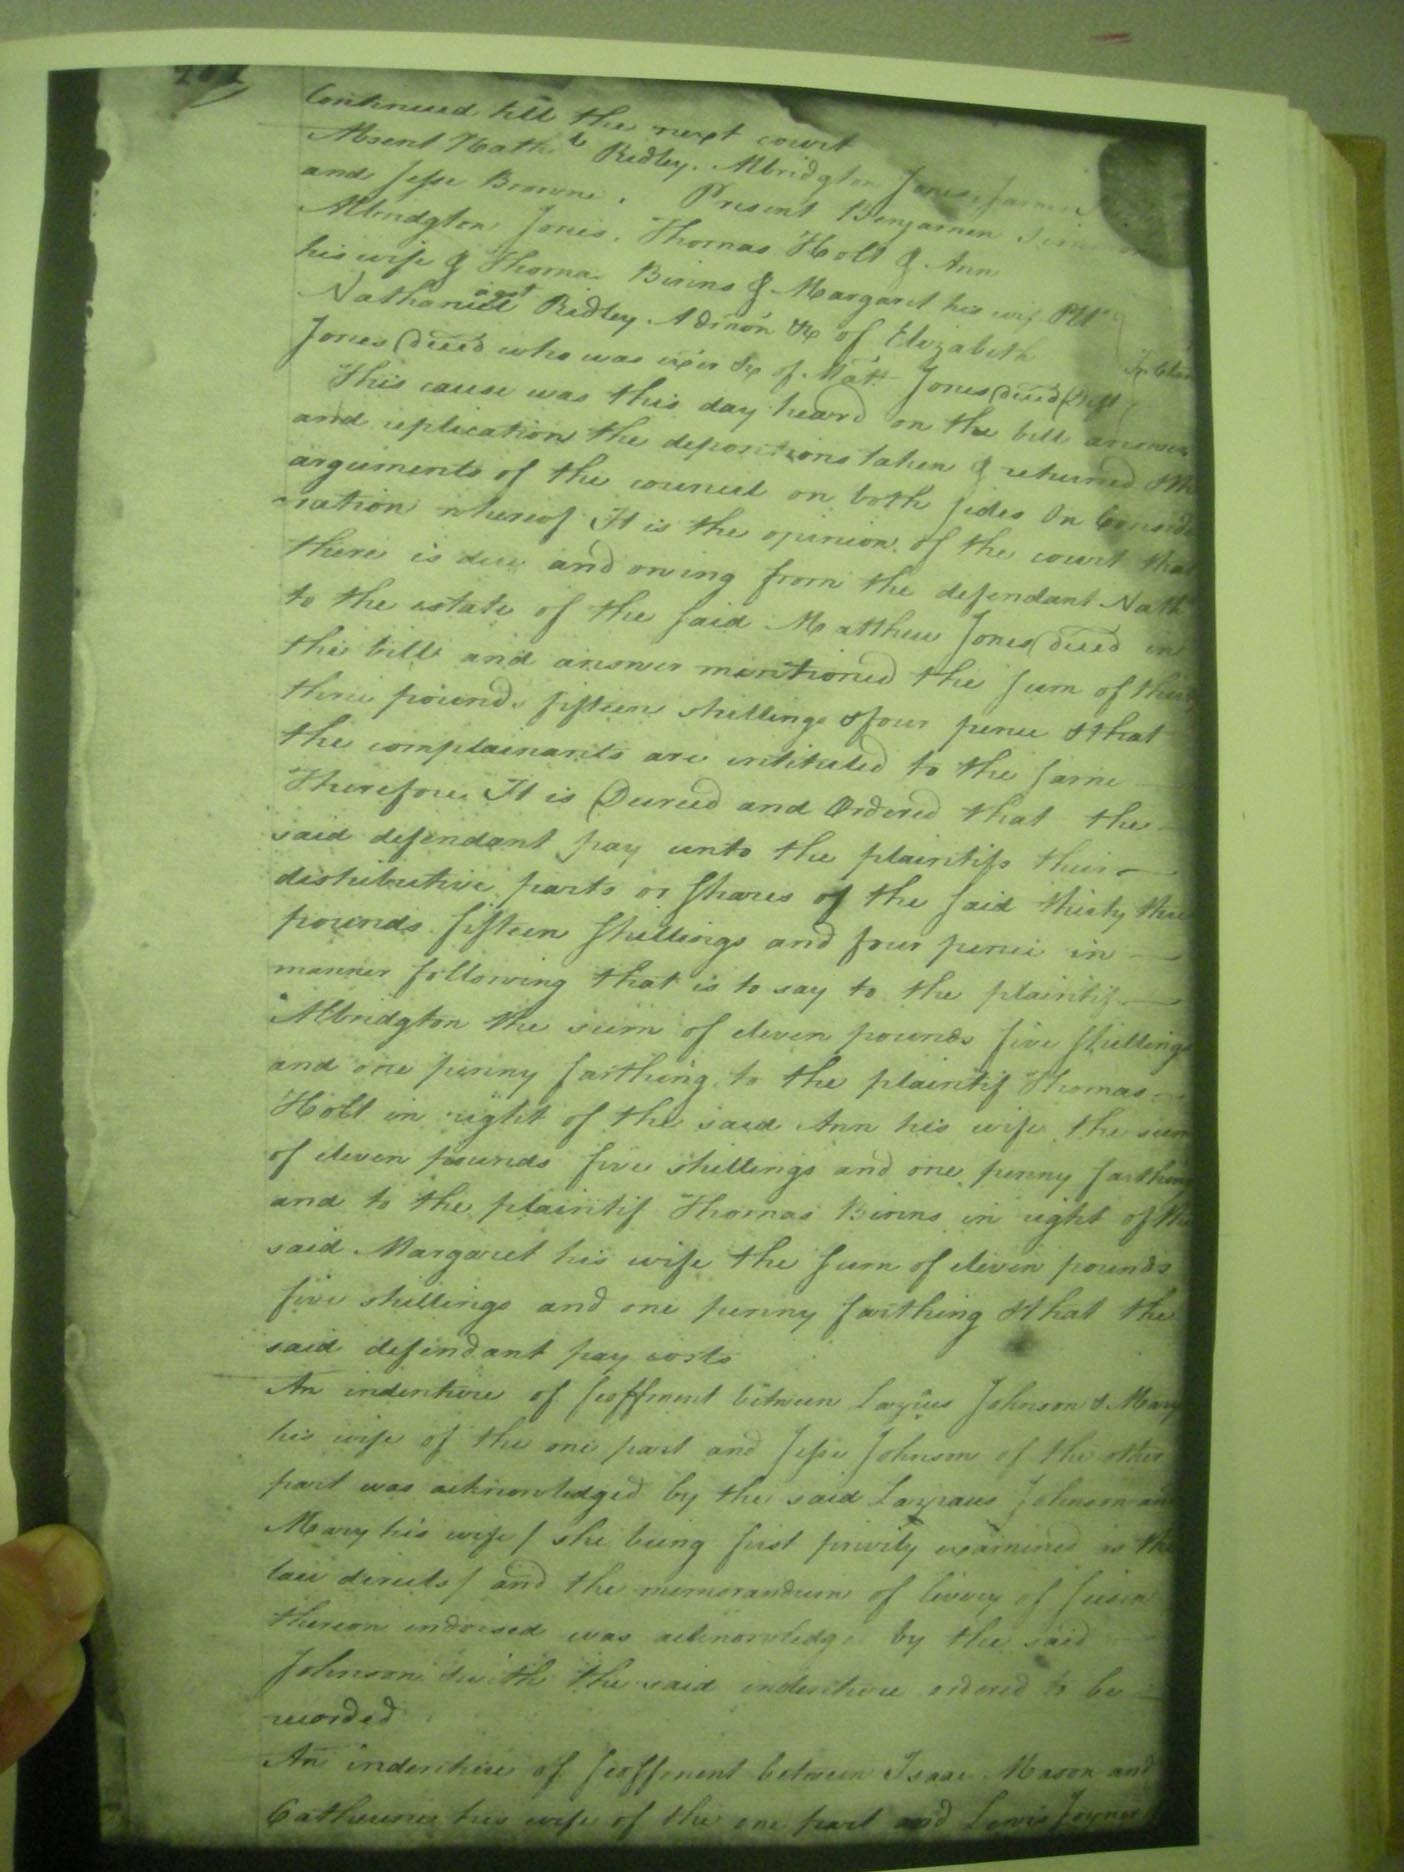 Continued till the next court
Absent Nath.l Ridley, Albridgton Jones, James
and Jesse Browne. Present Benjamin Simmons
Albridgton Jones, Thomas Holt & Ann
his wife & Thomas Binns & Margaret his wife Plts
against
Nathaniel Ridley Admon &c of Elizabeth
Jones deced who was exēr &c of Matt. Jones deced Deft
In Chan
This cause was this day heard on the bill answer
and replication the depositions taken & returned & the
arguments of the council on both sides On Conside
ration whereof It is the opinion of the court that
there is due and owing from the defendant Nath
to the estate of the said Matthew Jones deced in
the bill and answer mentioned the sum of thirty
three pounds fifteen shillings & four pence & that
the complainants are intituled to the same
Therefore It is Decreed and Ordered that the
said defendant pay unto the plaintifs their
distributive parts or shares of the said thirty three
pounds fifteen shillings and four pence in
manner following that is to say to the plaintif
Albridgton the sum of eleven pounds five shillings
and one penny farthing to the plaintif Thomas
Holt in right of the said Ann his wife the sum
of eleven pounds five shillings and one penny farthing
and to the plaintif Thomas Binns in right of the
said Margaret his wife the sum of eleven pounds
five shillings and one penny farthing & that the
said defendant pay costs
An indenture of feoffment between Lazrus Johnson & Mary
his wife of the one part and Jesse Johnson of the other
part was acknowledged by the said Lazraus Johnson and
Mary his wife / she being first privily examined as the
law directs / and the memorandum of livery of seisin
thereon indorsed was acknowledge by the said
Johnson & with the said indenture ordered to be
recorded
An indenture of feoffment between Isaac Mason and
Catherine his wife of the one part and Lewis Joyner